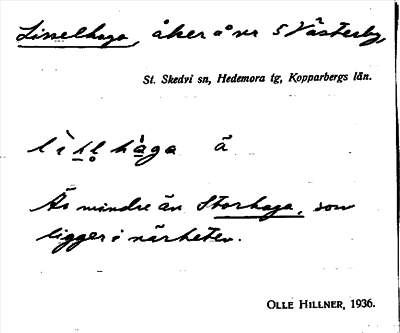 Lisselhaga, åker å nr 5 Västerby,
St. Skedvi sn, Hedemora tg, Kopparbergs län.
hàga ā
Äs mindre än Storhaga, som
ligger i närheten.
OLLE HILLNER, 1936.